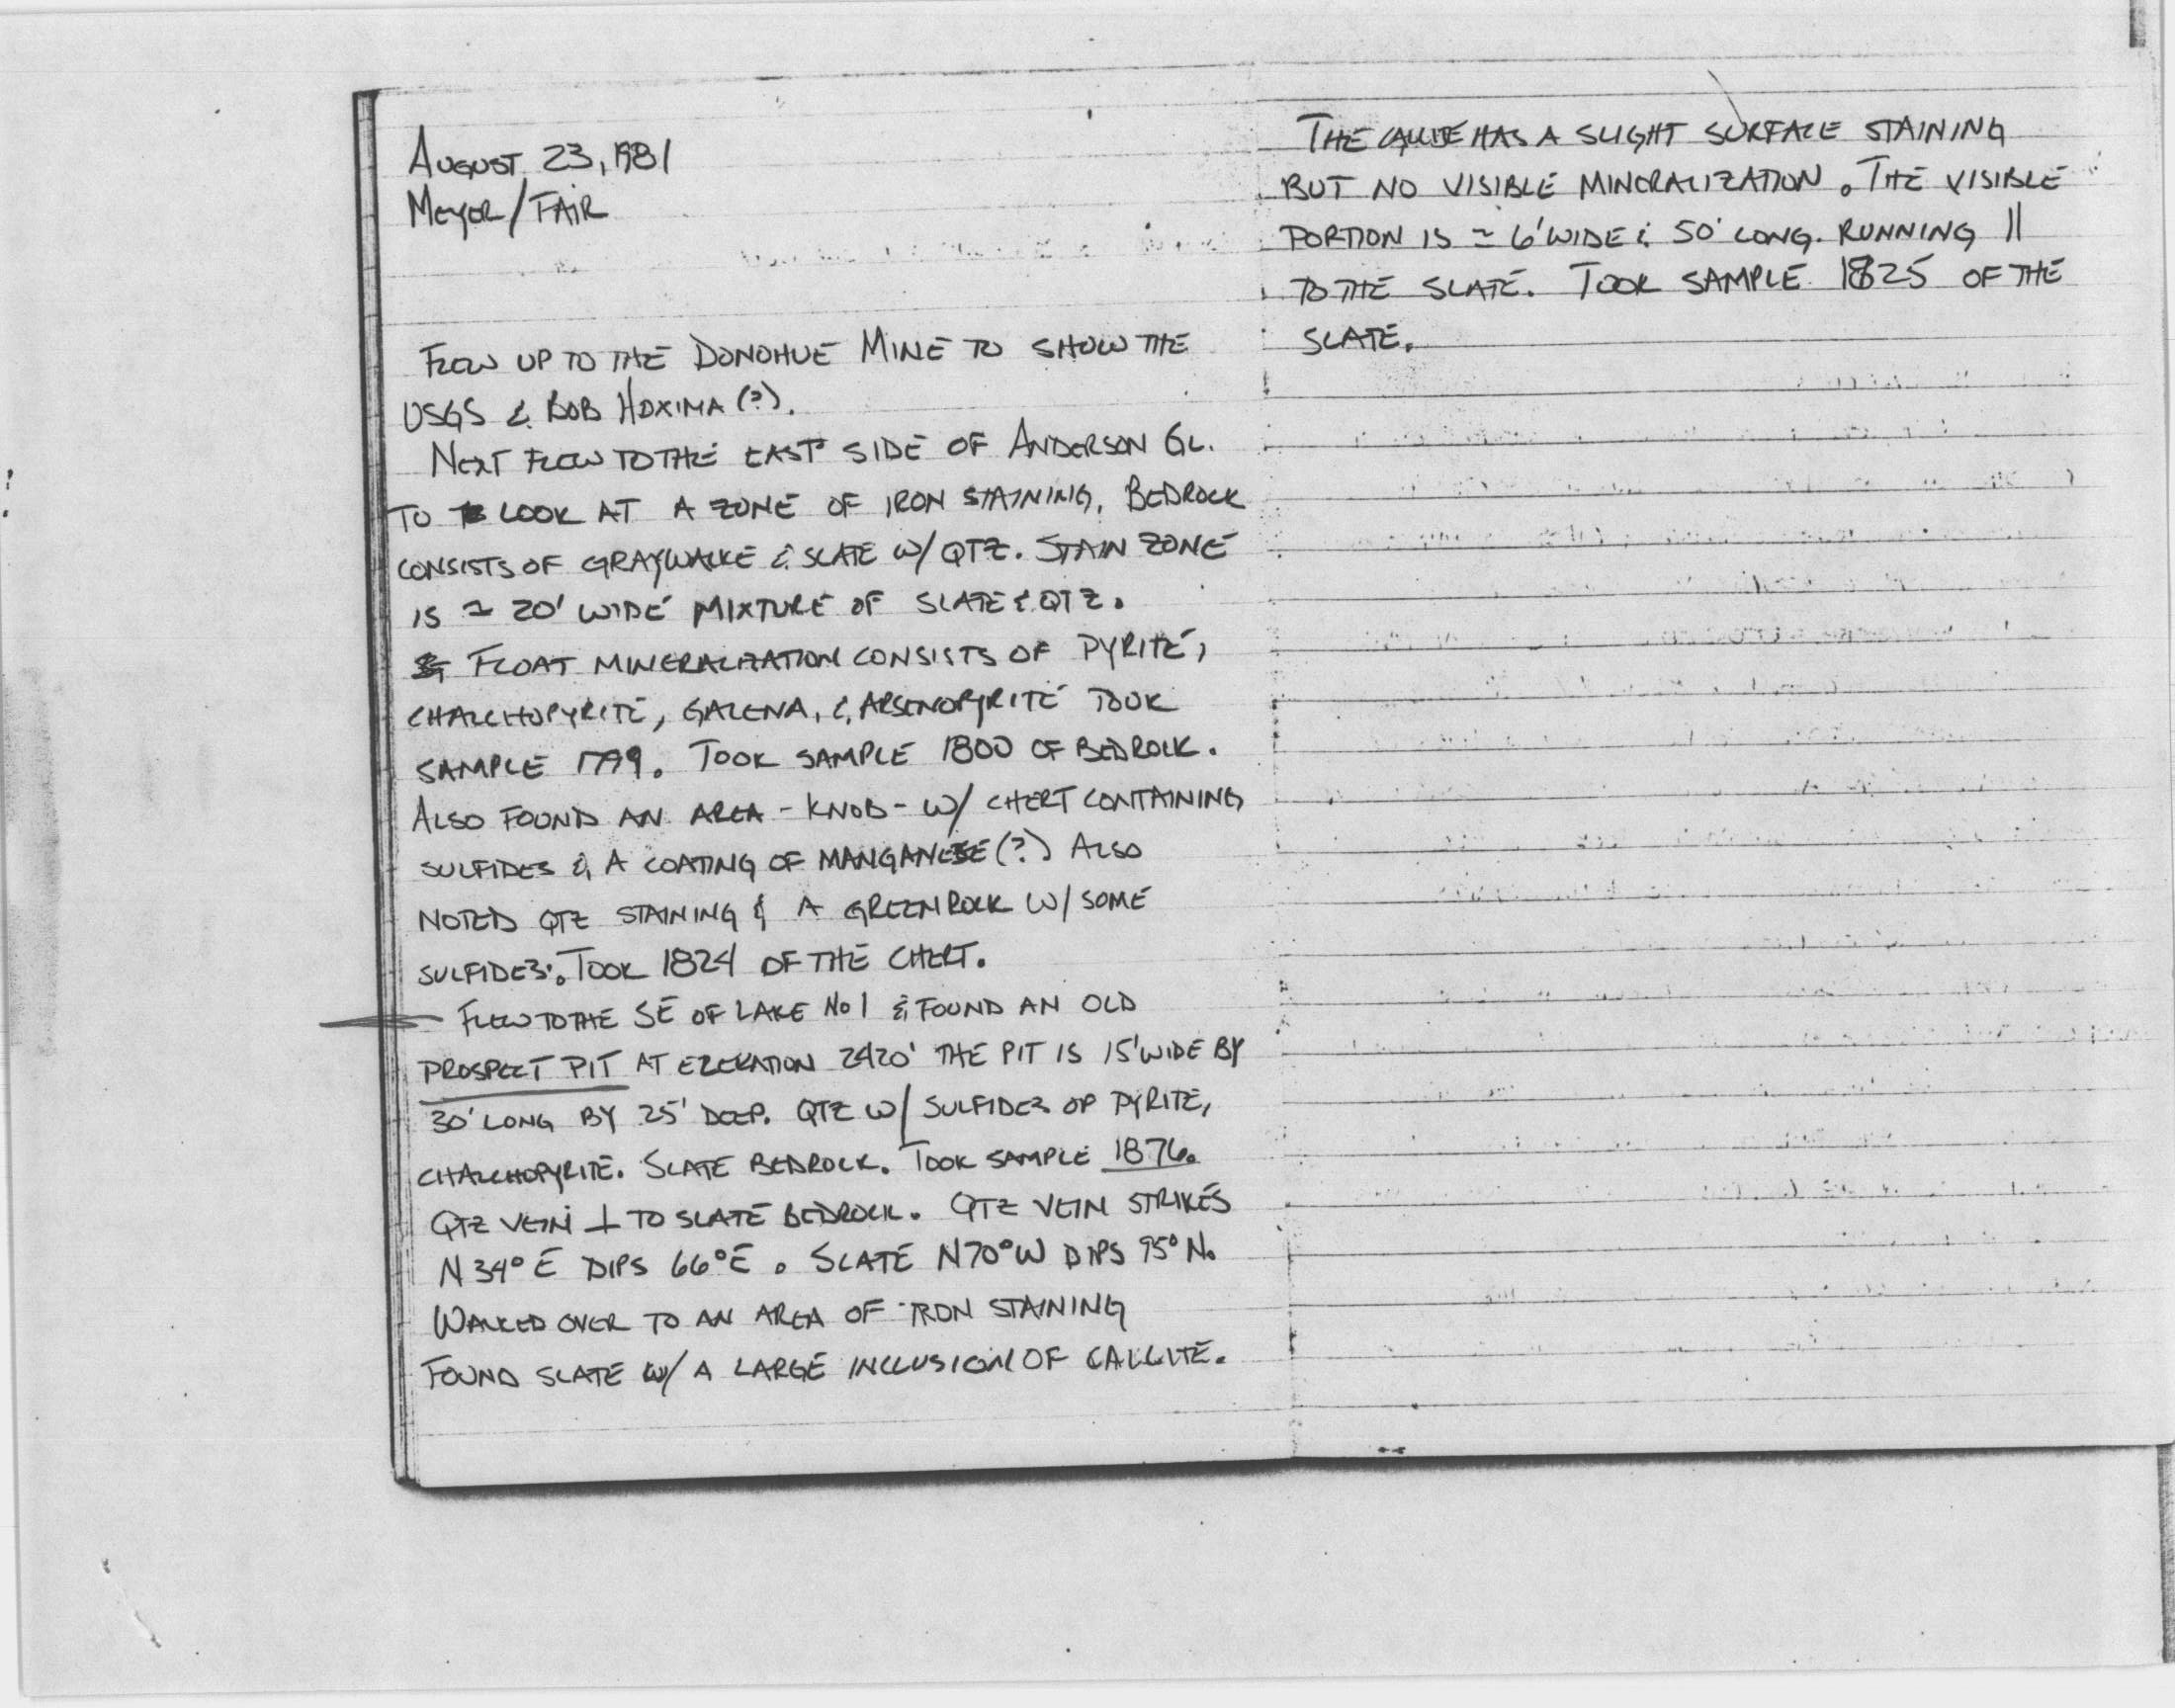 AUGUST 23, 1981
MEYER/FAIR
FLEW UP TO THE DONOHUE MINE TO SHOW THE
USGS & BOB HOXIMA (?).
NEXT FLEW TO THE EAST SIDE OF ANDERSON GL.
TO LOOK AT A ZONE OF IRON STAINING. BEDROCK
CONSISTS OF GRAYWACKE & SLATE W/ QTZ. STAIN ZONE
IS ≃ 20' WIDE MIXTURE OF SLATE & QTZ.
FLOAT MINERALIZATION CONSISTS OF PYRITE,
CHALCHOPYRITE, GALENA, & ARSENOPYRITE TOOK
SAMPLE 1799. TOOK SAMPLE 1800 OF BEDROCK.
ALSO FOUND AN AREA - KNOB - W/ CHERT CONTAINING
SULFIDES & A COATING OF MANGANESE (?) ALSO
NOTED QTZ STAINING & A GREEN ROCK W/ SOME
SULFIDES. TOOK 1824 OF THE CHERT.
FLEW TO THE SE OF LAKE No 1 & FOUND AN OLD
PROSPECT PIT AT ELEVATION 2420' THE PIT IS 15' WIDE BY
30' LONG BY 25' DEEP. QTZ W/ SULFIDES OF PYRITE,
CHALCHOPYRITE. SLATE BEDROCK. TOOK SAMPLE 1876.
QTZ VEIN ⊥ TO SLATE BEDROCK. QTZ VEIN STRIKES
N 34° E DIPS 66° E. SLATE N70°W DIPS 95° N.
WALKED OVER TO AN AREA OF IRON STAINING
FOUND SLATE W/ A LARGE INCLUSION OF CALCITE.
THE CALCITE HAS A SLIGHT SURFACE STAINING
BUT NO VISIBLE MINERALIZATION. THE VISIBLE
PORTION IS ≃ 6' WIDE & 50' LONG. RUNNING ||
TO THE SLATE. TOOK SAMPLE 1825 OF THE
SLATE.